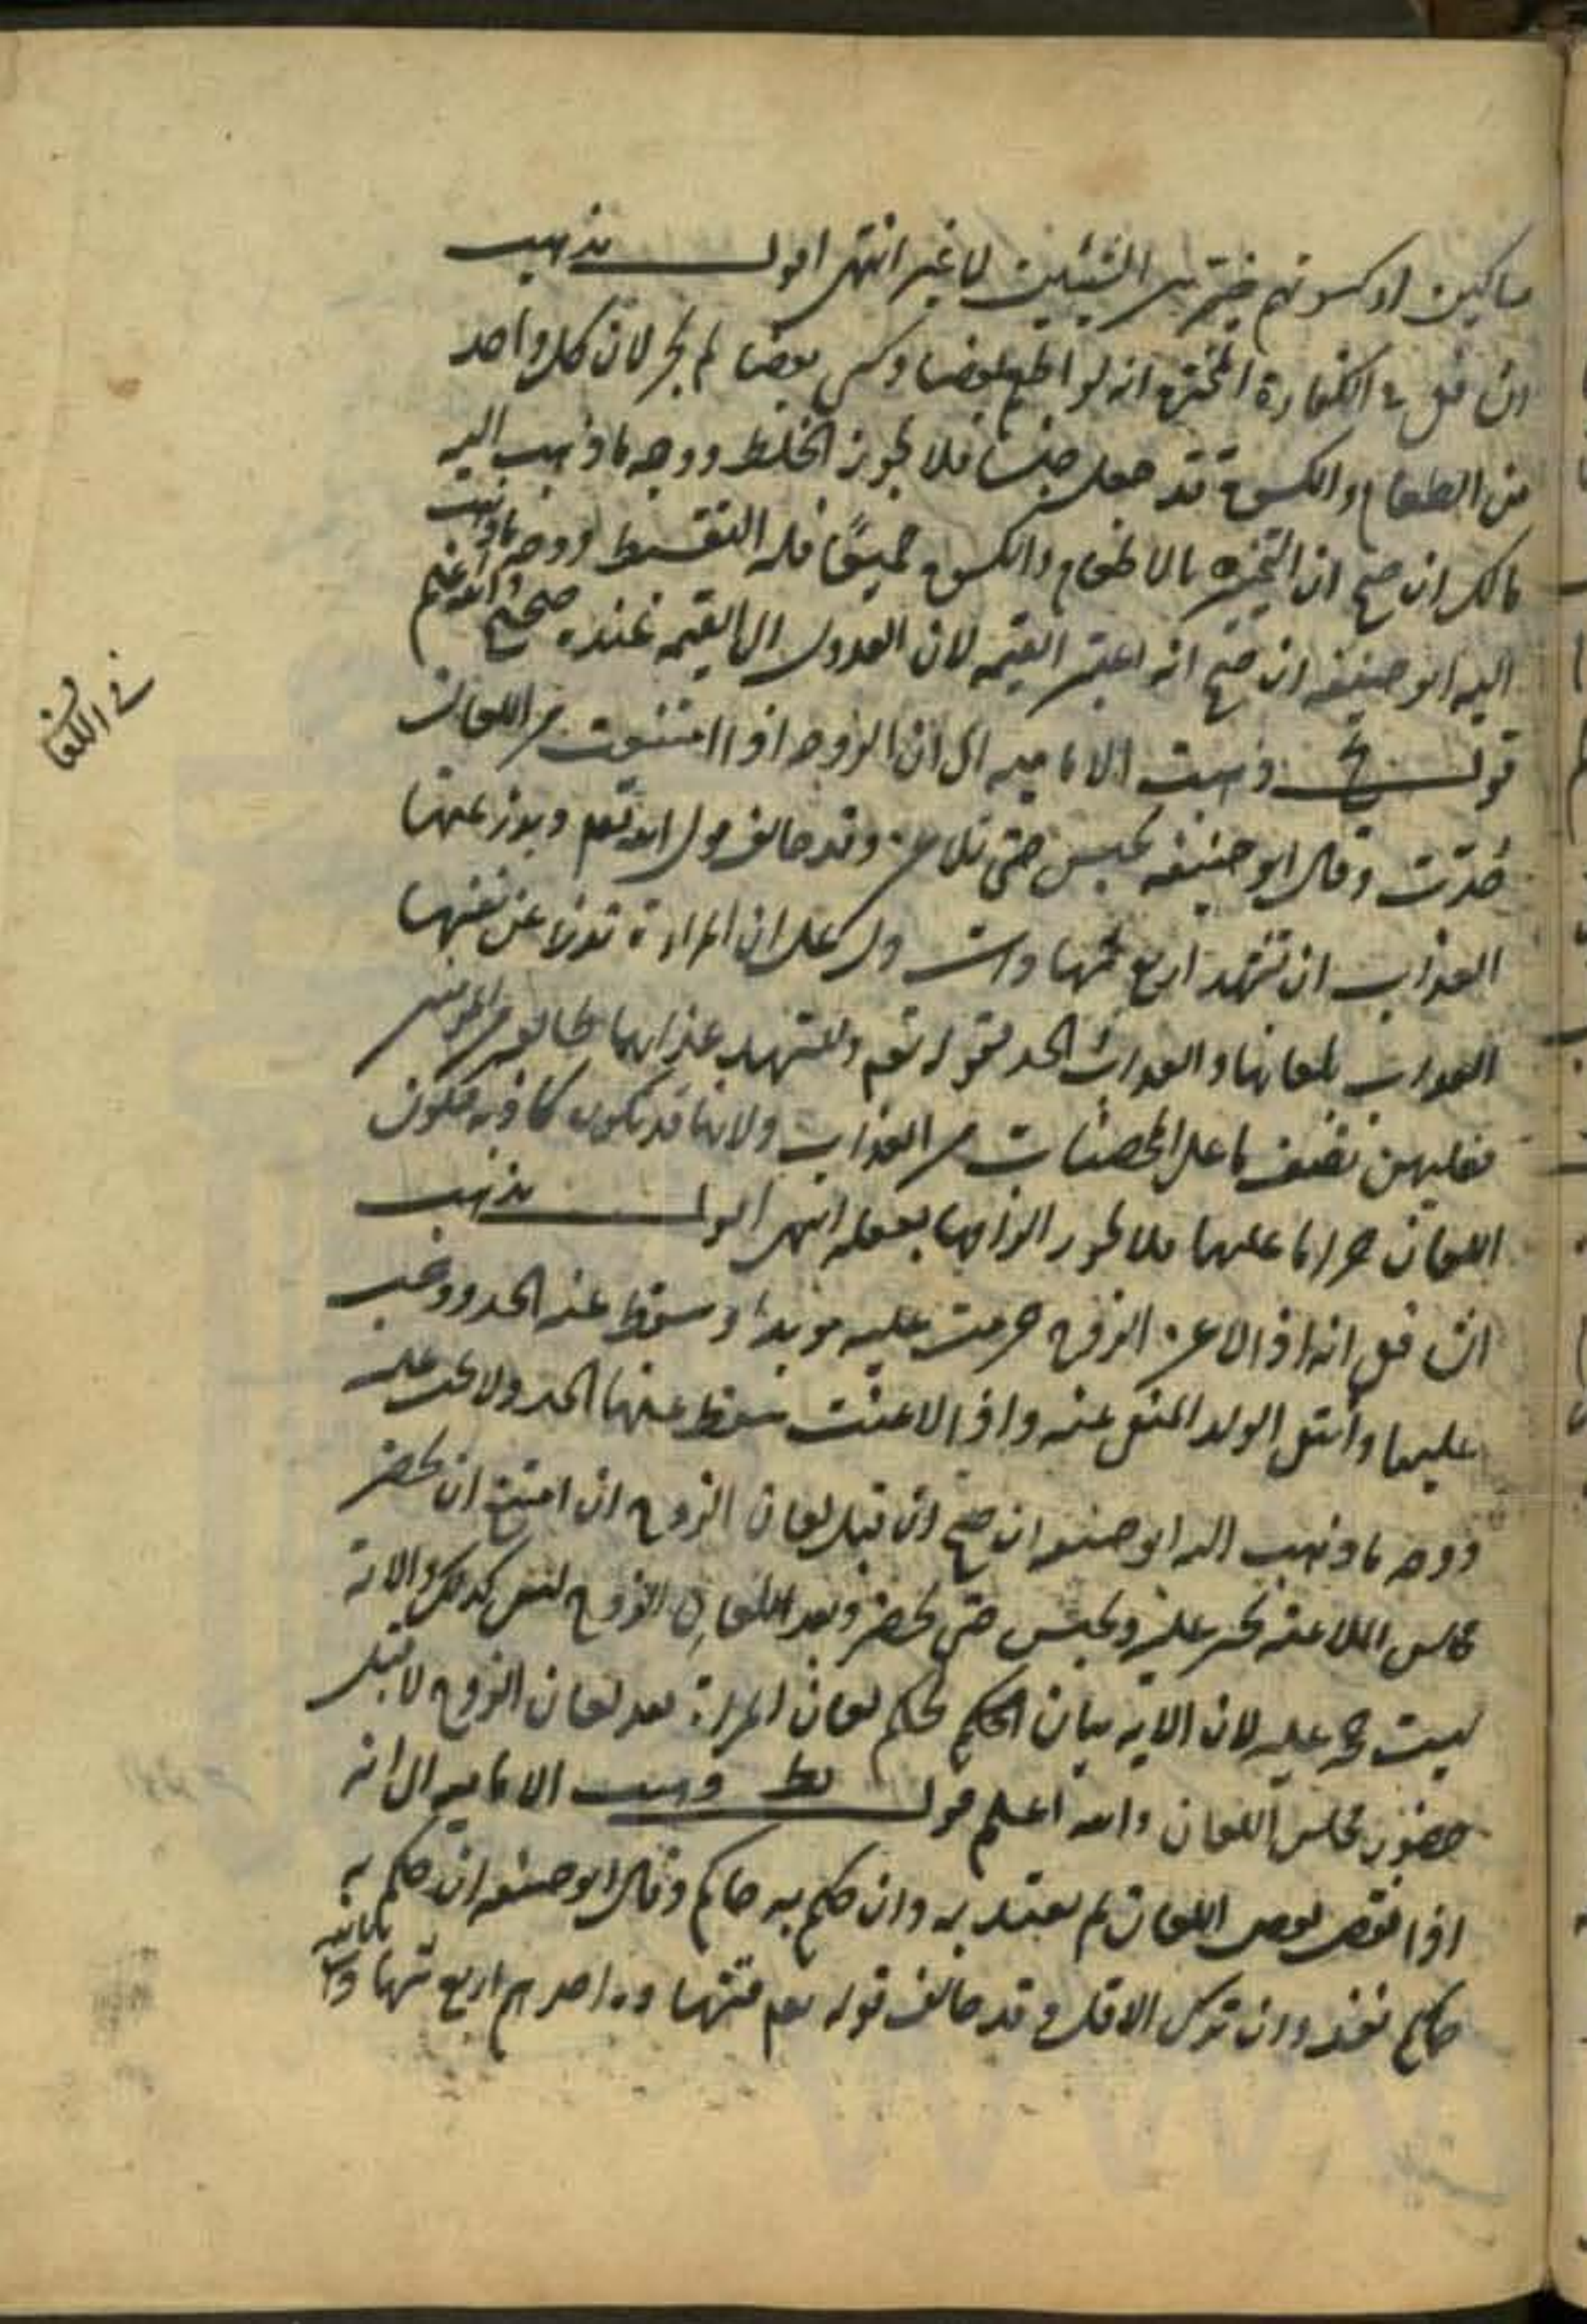 مساكين او كسوتهم خير بين الشيئين لا غير انتهى اقول مذهب
ان فعل في الكفارة المخيرة انه لو اطعم بعضا وكسى بعضا لم يجز لان كل واحد
من الطعام والكسوة قد جعل جنسا فلا يجوز الخلط ووجه ما ذهب اليه
مالك ان صح ان التخيير بالاطعام والكسوة جميعًا فله التقسيط ووجه ما ذهب
اليه ابو حنيفه ان صح انه اعتبر القيمه لان العدول الى القيمه عنده صحيح والله اعلم
قوله يح ذهبت الاماميه الى ان الزوجه اذا امتنعت من اللعان
حدّت وقال ابو حنيفه يحبس حتى تلاعن وقد خالف قول الله تعم ويدرؤ عنها
العذاب ان تشهد اربع شهادات دل على ان المراة تدرا عن نفسها
العذاب بلعانها والعذاب الحد لقوله تعم وليشهد عذابهما طائفه من المؤمنين
فعليهن نصف ما على المحصنات من العذاب ولانها قد تكون كاذبه فيكون
اللعان حراما عليها فلا يجوز الزامها بفعله انتهى اقول مذهب
ان فعل انه اذا لاعن الزوج حرمت عليه مؤبدا وسقط عنه الحد ووجب
عليها وانتفى الولد المنفى عنه واذا لاعنت سقط عنها الحد ولا يجب عليه
ووجه ما ذهب اليه ابو حنيفه ان صح ان قبل لعان الزوج ان امتنع ان يحضر
مجلس الملاعنه يجبر عليه ويحبس حتى يحضر وبعد اللعان الزوج ليس كذلك والاية
ليست حجه عليه لان الايه بيان الحكم لحكم لعان المراة بعد لعان الزوج لا قبل
حضور مجلس اللعان والله اعلم قوله يط ذهبت الاماميه الى انه
اذا نقص بعض اللعان لم يعتد به وان حكم به حاكم وقال ابو حنيفه ان حكم به
حاكم نفذ وان ترك الاقل وقد خالف قوله تعم فشهادة احدهم اربع شهادات بالله
في اللعان